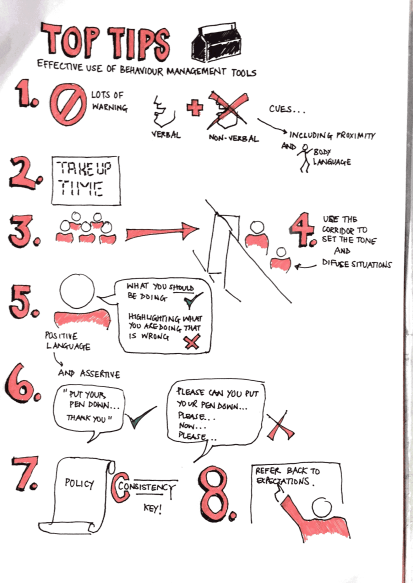 TOP TIPS
EFFECTIVE USE OF BEHAVIOUR MANAGEMENT TOOLS
1.
LOTS OF
WARNING
VERBAL
NON-VERBAL
CUES...
INCLUDING PROXIMITY
AND BODY
LANGUAGE
2.
TAKE UP
TIME
3.
4.
USE THE
CORRIDOR TO
SET THE TONE
AND
DIFUSE SITUATIONS
5.
WHAT YOU SHOULD
BE DOING
HIGHLIGHTING WHAT
YOU ARE DOING THAT
IS WRONG
POSITIVE
LANGUAGE
AND ASSERTIVE
6.
"PUT YOUR
PEN DOWN...
THANK YOU"
PLEASE CAN YOU PUT
YOUR PEN DOWN...
PLEASE...
NOW...
PLEASE...
7.
POLICY
CONSISTENCY
KEY!
8.
REFER BACK TO
EXPECTATIONS.